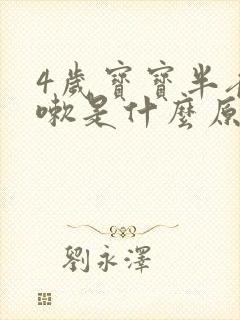 4歲寶寶半
嗽是什麼原
劉永澤